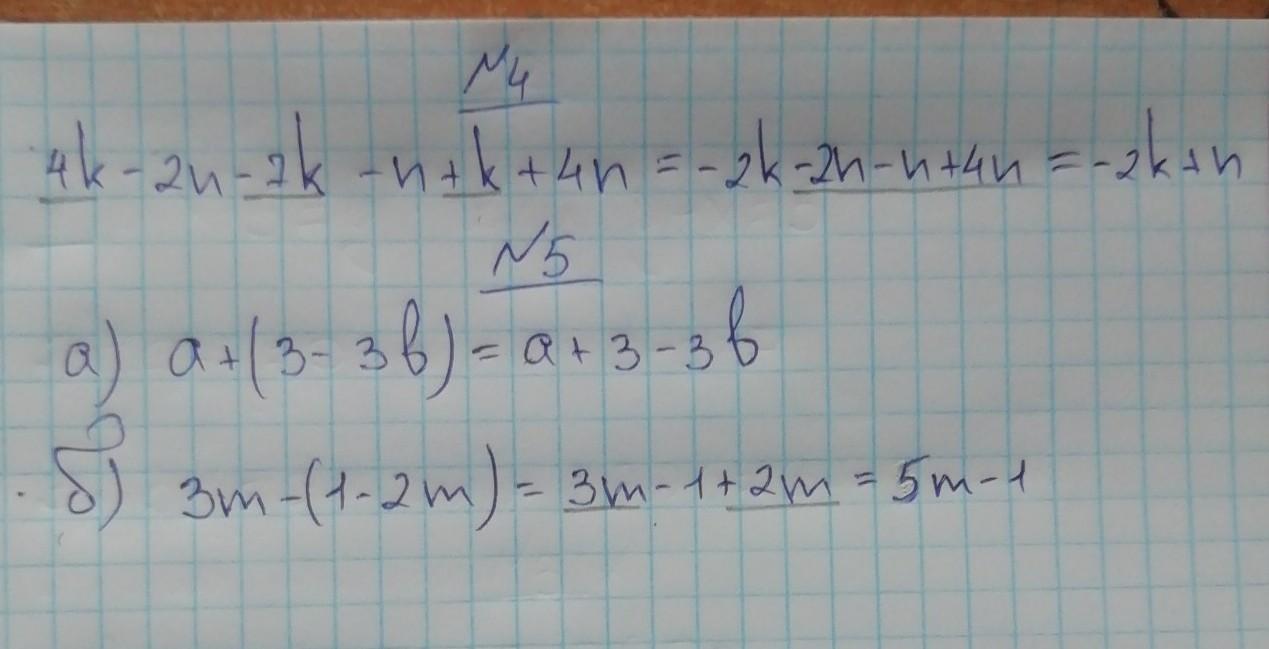 №4
4k - 2n - 7k - n + k + 4n = -2k - 2n - n + 4n = -2k + n
№5
а) a + (3 - 3b) = a + 3 - 3b
б) 3m - (1 - 2m) = 3m - 1 + 2m = 5m - 1